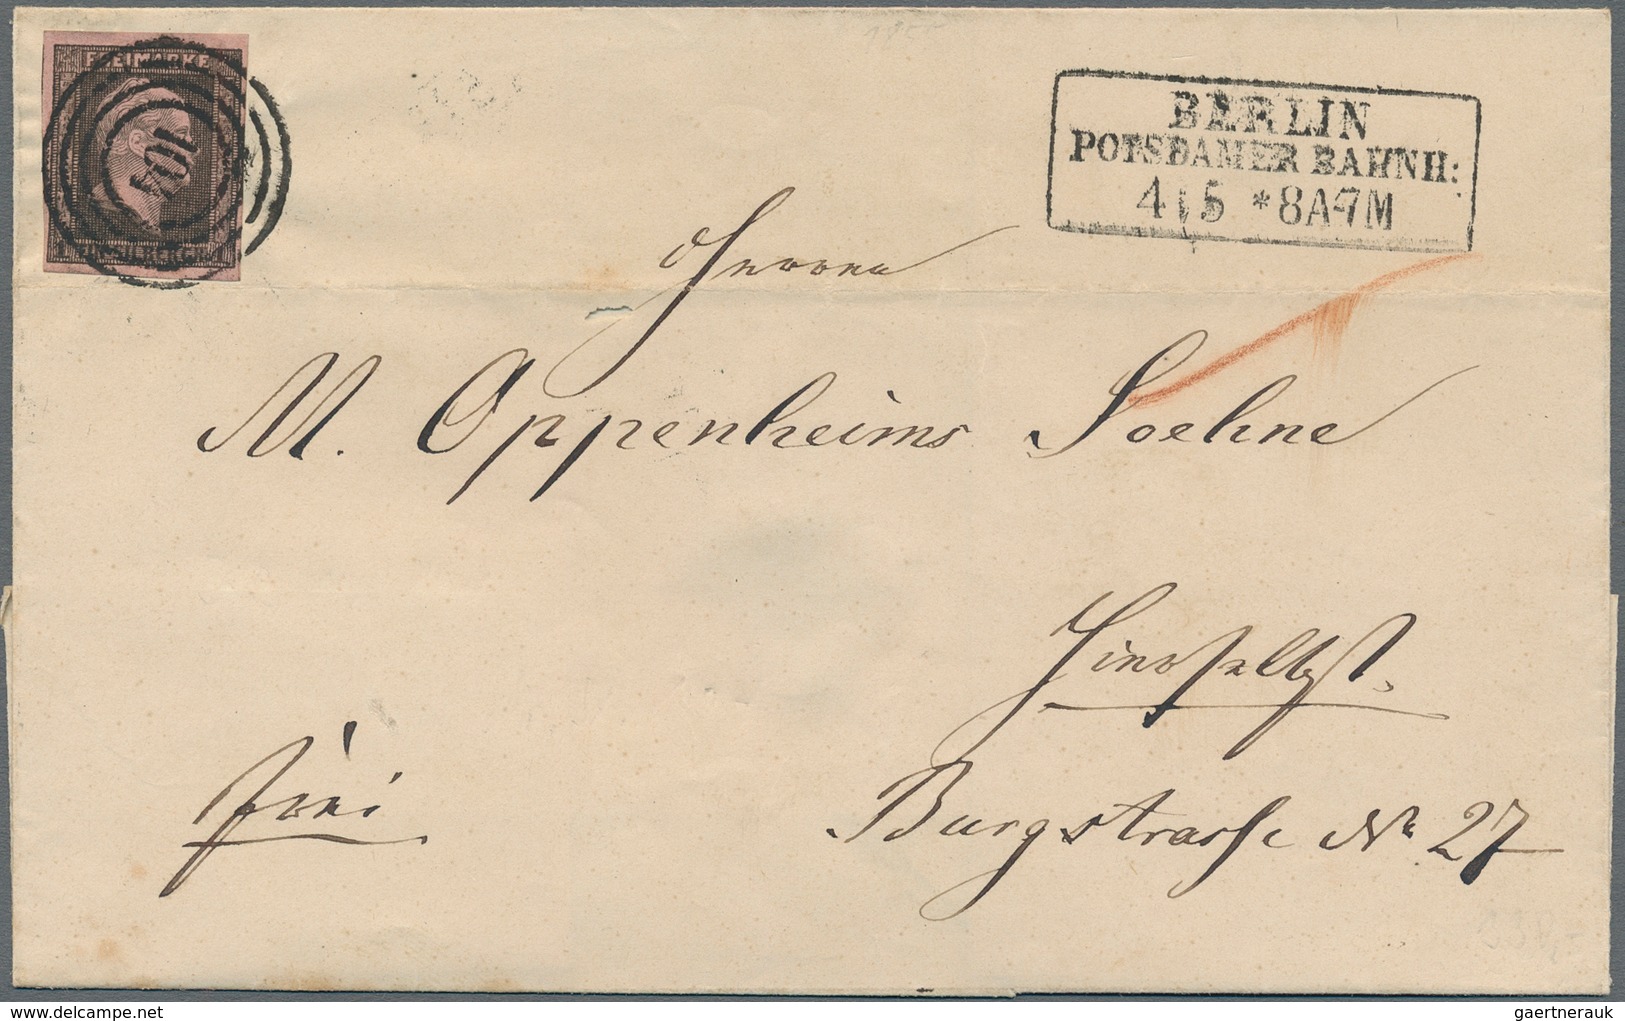 FREIMARKE
104
BERLIN
POTSDAMER BAHNH:
4 | 5 * 8 A 7 M
Herren
M. Oppenheims Soehne
Hierselbst.
frei
Burgstrasse No 27
gaertnerauk